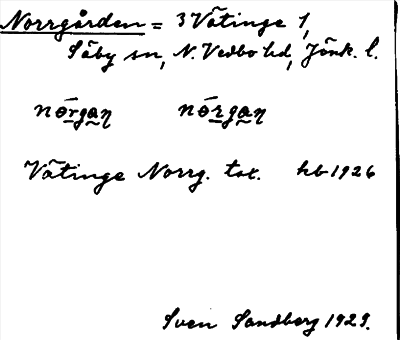 Norrgården = 3 Vätinge 1,
Säby sn, N. Vedbo hd, Jönk. l.
nórgan nórgan
Vätinge Norrg. tax. hb 1926
Sven Sandberg 1929.